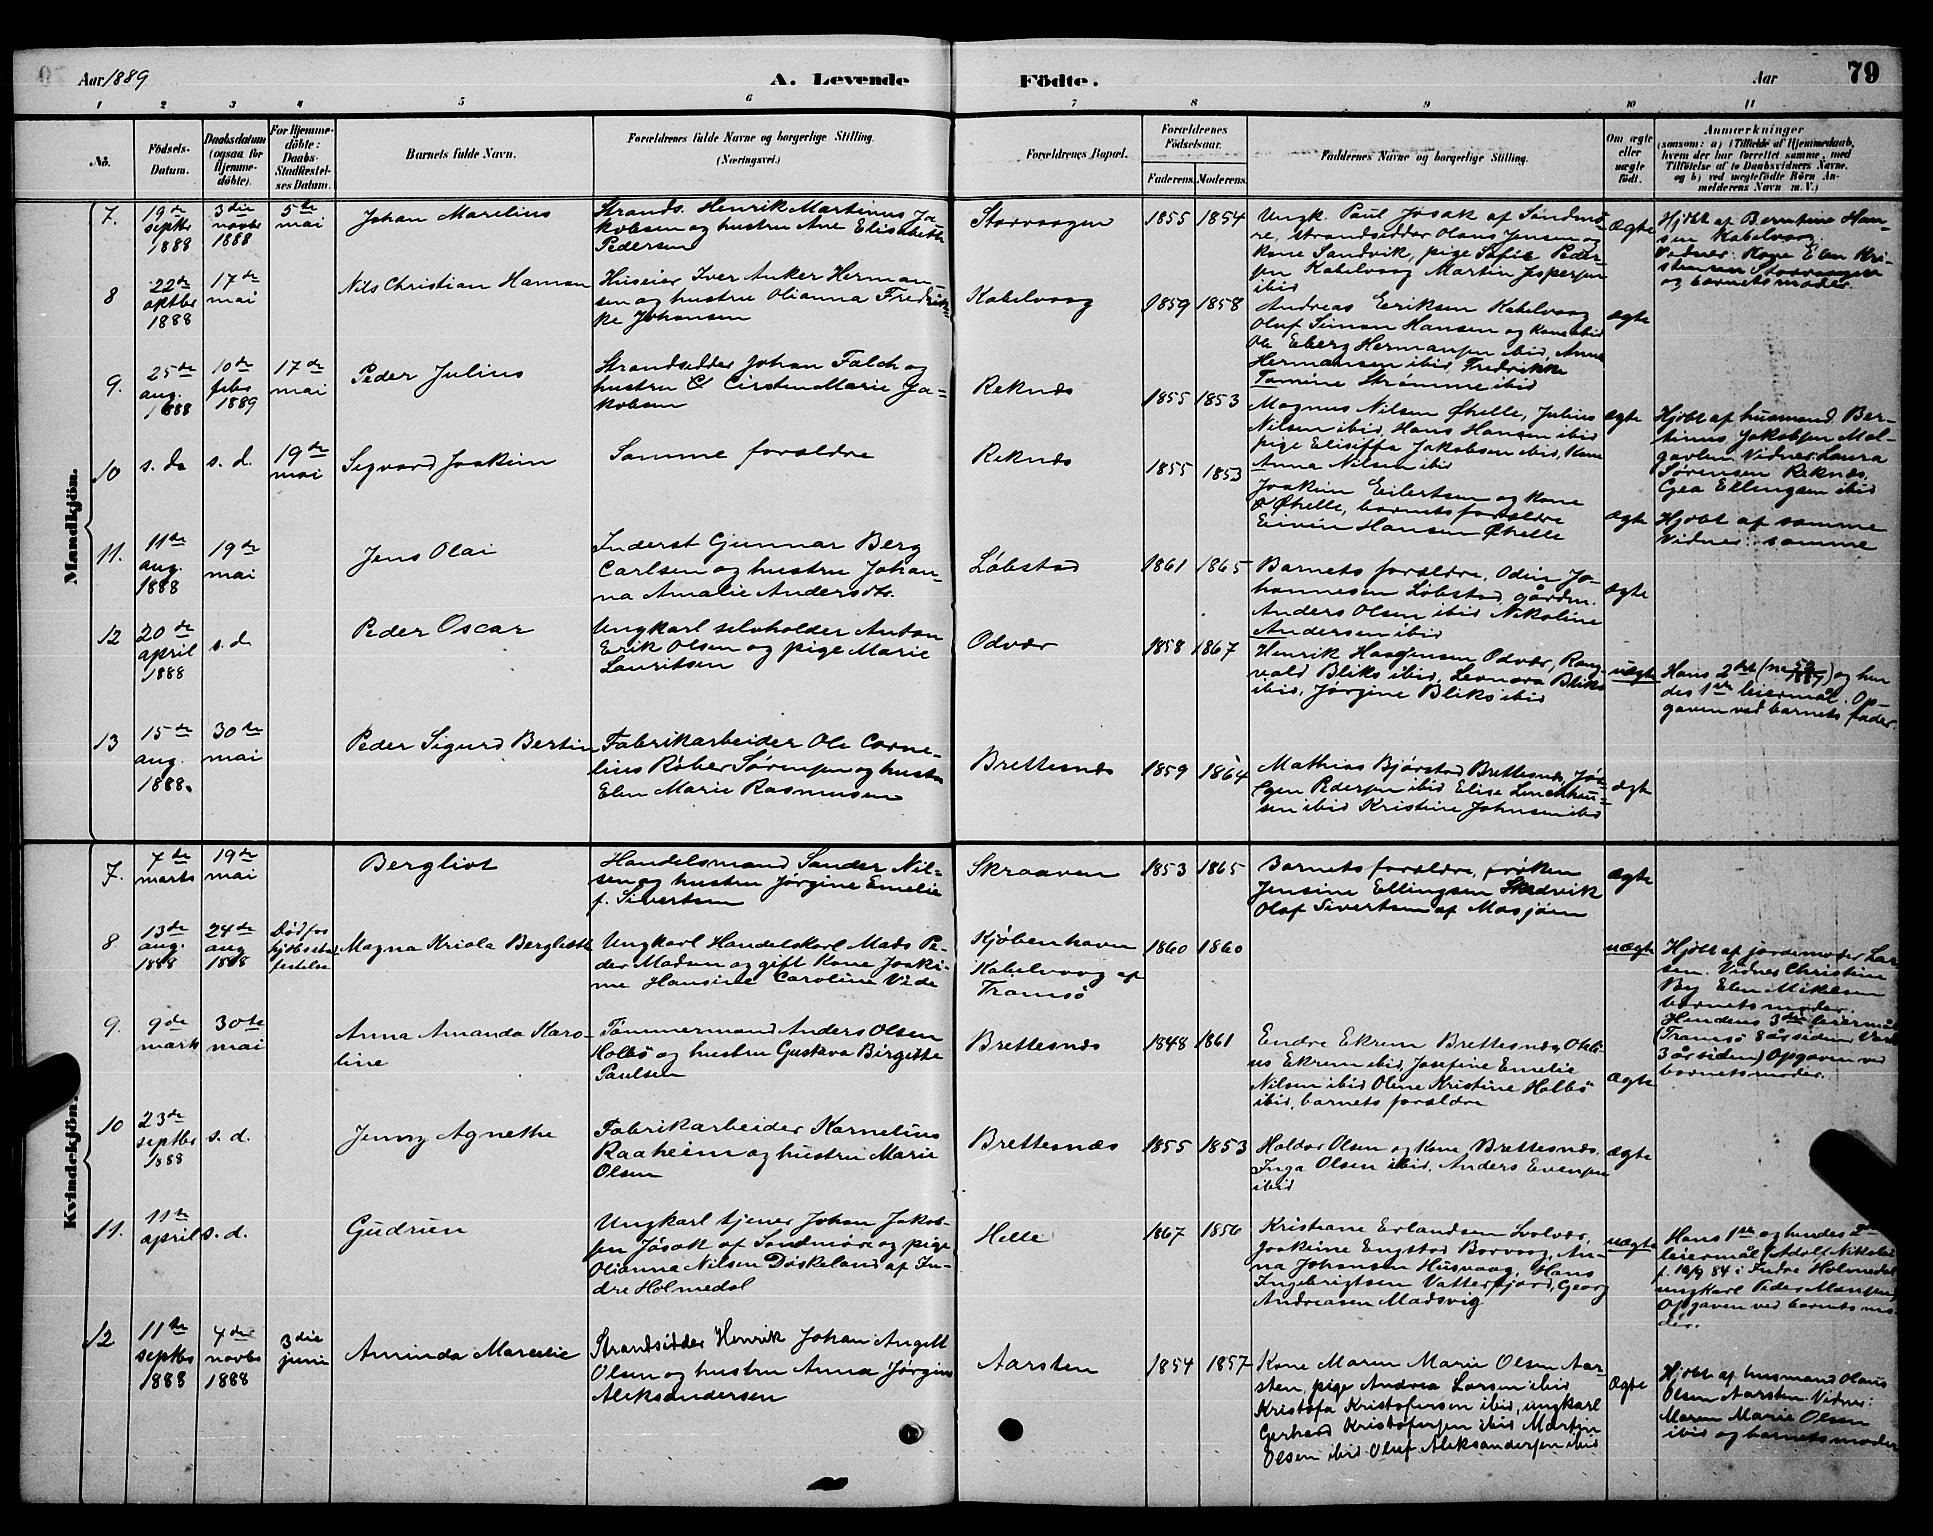 Aar 1889
A. Levende Födte.
Aar
79
1 2 3 4 5 6 7 8 9 10 11
No.
Födsels-
Datum.
Daabsdatum
(ogsaa for
Hjemme-
döbte).
For Hjemme-
döbte:
Daabs-
Stadfæstel-
ses Datum.
Barnets fulde Navn.
Forældrenes fulde Navne og borgerlige Stilling.
(Næringsvei.)
Forældrenes Bopæl.
Forældrenes
Födselsaar.
Faderens. Moderens.
Faddernes Navne og borgerlige Stilling.
Om ægte
eller
uægte
født.
Anmærkninger
(saasom: a) i Tilfælde af Hjemmedaab,
hvem der har forrettet samme, med
Tilföielse af to Daabsvidners Navne.
og b) ved uægtefödte Börn An-
melderens Navn m. V.)
Mandkjön.
7.
19de
septbr
1888
3die
novbr
1888
5te
mai
Johan Marelius
Strands. Henrik Martinus Ja-
kobsen og hustru Ane Elisabeth
Pedersen
Storvaagen
1855 1854
Ungk. Paul Josak af Söndmö-
re, strandsidder Olaus Jensen og
kone Sandvik, pige Sofie Peder-
sen Kabelvaag Martin Jespersen
ibid
ægte
Hjdbt af Berntine Han-
sen Kabelvaag.
Vidner: Kone Elen Kri-
stensen Storvaagen
og barnets moder.
8
22de
oktbr
1888
17de
mai
Nils Christian Haman
Huseier Iver Anker Herman-
sen og hustru Olianna Fredrik-
ke Johansen
Kabelvaag
1859 1858
Andreas Eriksen Kabelvaag
Oluf Simon Hansen og kone ibid
Ole Eberg Hermansen ibid, Anna
Hermansen ibid Fredrikke
Tomine Strømme ibid
ægte
9.
25de
aug.
1888
10de
febr
1889
17de
mai
Peder Julius
Strandsidder Johan Falch og
hustru Cirsten Marie Ja-
kobsen
Reknæs
1855 1853
Magnus Nilsen Øhelle, Julius
Nilsen ibid, Hans Hansen ibid
pige Elisiffa Jakobsen ibid, Kone
Anna Nilsen ibid
ægte
Hjdbt af husmand Ber-
tinus Jakobsen Mol-
gavlen Vidner Laura
Sørensen Reknæs,
Gea Ellingsen ibid
10
s. d.
s. d.
19de
mai
Sigvard Joakim
Samme forældre
Reknæs
1855 1853
Joakim Eilertsen og kone
Øhelle, barnets forældre
Eivin Hansen Øhelle
ægte
Hjdbt af samme
Vidner: samme
11.
11te
aug.
1888
19de
mai
Jens Olai
Inderst Gunnar Berg
Carlsen og hustru Johan-
na Amalie Andersdtr.
Løbstad
1861 1865
Barnets forældre, Odin Jo-
hannesen Löbstad, gårdm.
Anders Olsen ibid Nikoline
Andersen ibid
ægte
12
20de
april
1888
s. d.
Peder Oscar
Ungkarl selvholder Anton
Erik Olsen og pige Marie
Lauritsen
Odvær
1858 1867
Henrik Haagensen Odvær, Rag-
vald Bliks ibid, Leonora Bliks
ibid, Jørgine Bliks ibid
uægte
Hans 2det (no 59/1887) og hen
des 1ste leiermål. Op-
gaven ved barnets fader.
13
15de
aug.
1888.
30te
mai
Peder Sigurd Bertin
Fabrikarbeider Ole Corne-
lius Røber Sørensen og hustru
Elen Marie Rasmusen
Brettesnæs
1859 1864
Mathias Bjørstad Brettesnæs, Jør-
gen Pedersen ibid Elise
sen ibid Kristine Johnsen ibid
ægte
Kvindekjön.
7.
7de
marts
19de
mai
Bergliot
Handelsmand Sander Nil-
sen og hustru Jørgine Emelie
f. Sivertsen
Skraaven
1853 1865
Barnets forældre, frøken
Jensine Ellingsen Skedvik
Olaf Sivertsen af Mosjöen
ægte
8
13de
aug.
1888
24de
aug
1888
Død før
hjdbsstad-
festelse
Magna Kriola Bergliotte
Ungkarl Handelskarl Mads Pe-
der Madsen og gift Kone Joaki-
me Hansine Caroline Vide
Kjöbenhavn
Kabelvaag af
Tromsö
1860 1860
uægte
Hjdbt af jordemoder Lar
sen. Vidner Christine
By Elen Mikelsen
barnets moder.
Hendes 3die leiermål
(Tromsö 8 år siden, Vard
3 år siden) Opgaven ved
barnets moder.
9.
9de
marts
30te
mai
Anna Amanda Karo-
line
Tömmermand Anders Olsen
Holbö og hustru Gustava Birgitte
Paulsen
Brettesnæs
1848 1861
Endre Ekrem Brettesnæs, Oteli-
us Ekrem ibid, Josefine Emelie
Nilsen ibid Oline Kristine Holbö
ibid, barnets forældre
ægte
10
23de
septbr
1888
s. d.
Jenny Agnethe
Fabrikarbeider Kornelius
Raaheim og hustru Marie
Olsen
Brettesnæs
1855 1853
Haldor Olsen og Kone Brettesnæs,
Inga Olsen ibid, Anders Evensen
ibid
ægte
11.
11te
april
s. d.
Gudrun
Ungkarl tjener Johan Jakob-
sen Jösok af Söndmöre og pige
Olianna Nilsen Döskeland af In-
dre Holmedal
Helle
1867 1856
Kristiane Erlandsen Svolvær,
Joakime Engstad Borvaag, An-
na Johansen Husvaag, Hans
Ingebrigtsen Vatterfjord, Georg
Andreasen Madsvig
uægte
Hans 1ste og hendes 2det
leiermål (Adolf Nikolai
f. 10/9 84 i Indre Holmedal
ungkarl Peder Monsen)
Opgaven ved barnets mo-
der.
12
11te
septbr
1888
4de
novbr
1888
3die
juni
Aminda Marcelie
Strandsidder Henrik Johan Angell
Olsen og hustru Anna Jørgine
Aleksandersen
Aarsten
1854 1857
Kone Maren Marie Olsen Aar-
sten, pige Andrea Larsen ibid
Kristofa Kristofersen ibid, ungkarl
Gerhard Kristofersen ibid Martin
Olsen ibid Oluf Aleksandersen ibid
ægte
Hjdbt af husmand Olaus
Olsen Aarsten Vidner:
Maren Marie Olsen
ibid og barnets moder